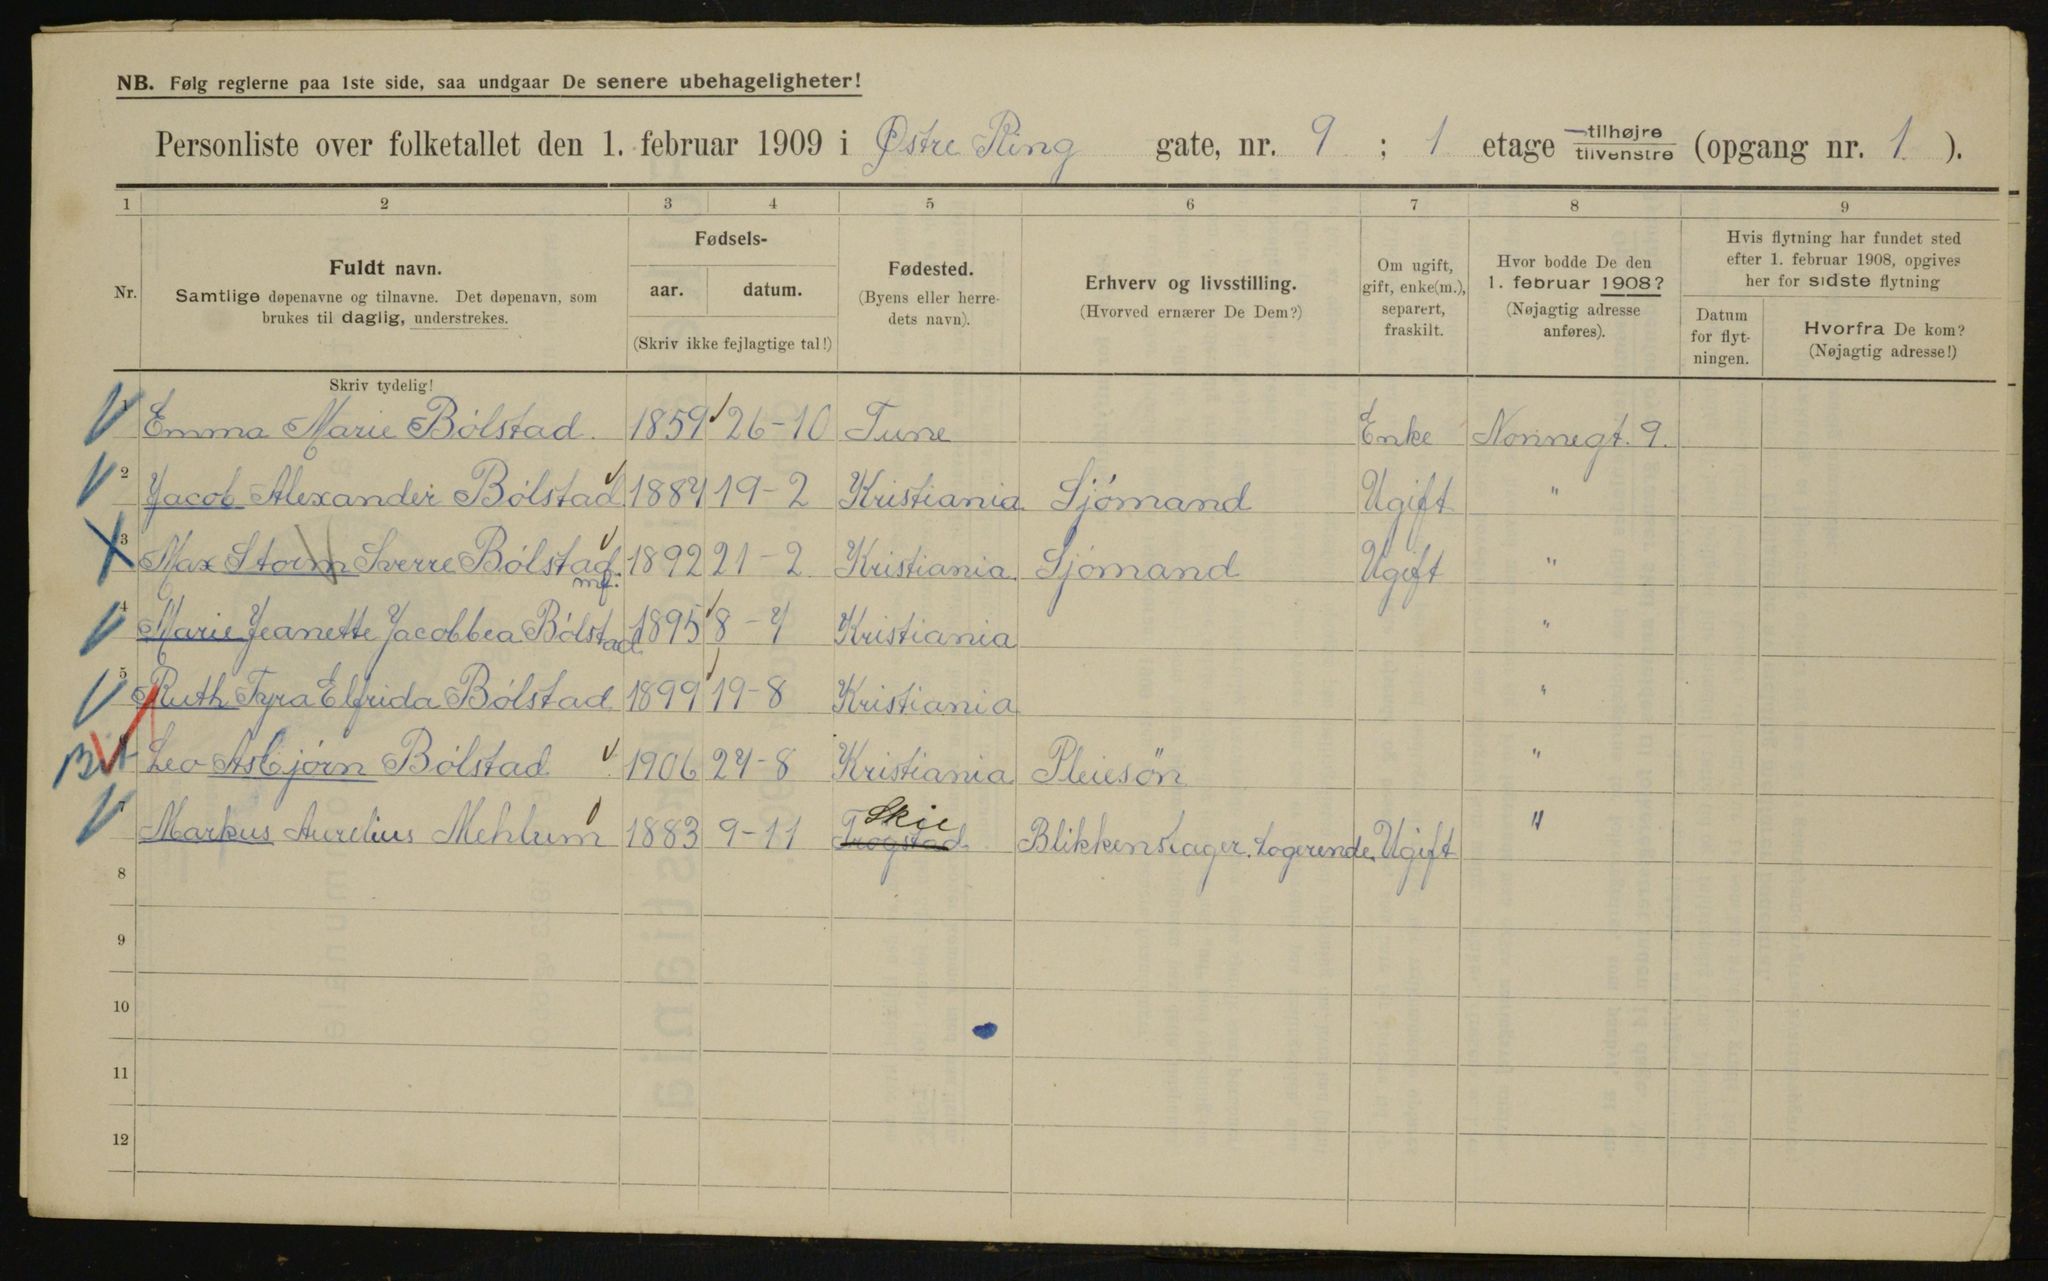 NB. Følg reglerne paa 1ste side, saa undgaar De senere ubehageligheter!
Personliste over folketallet den 1. februar 1909 i Østre Ring gate, nr. 9 ; 1 etage tilhøjre tilvenstre (opgang nr. 1 ).
1 2 3 4 5 6 7 8 9
Nr.
Fuldt navn.
Samtlige døpenavne og tilnavne. Det døpenavn, som
brukes til daglig, understrekes.
Fødsels-
aar. datum.
(Skriv ikke fejlagtige tal!)
Fødested.
(Byens eller herre-
dets navn).
Erhverv og livsstilling.
(Hvorved ernærer De Dem?)
Om ugift,
gift, enke(m.),
separert,
fraskilt.
Hvor bodde De den
1. februar 1908?
(Nøjagtig adresse
anføres).
Hvis flytning har fundet sted
efter 1. februar 1908, opgives
her for sidste flytning
Datum
for flyt-
ningen.
Hvorfra De kom?
(Nøjagtig adresse!)
Skriv tydelig!
1 Emma Marie Bólstad. 1859 26-10 Tune Enke Nonnegt. 9.
2 Jacob Alexander Bólstad 1884 19-2 Kristiania Sjómand Ugift "
3 Max Storm Sverre Bólstad. 1892 21-2 Kristiania Sjómand Ugift "
mf.
4 Marie Jeanette Jacobbea Bólstad 1895 8-4 Kristiania "
5 Ruth Tyra Elfrida Bólstad 1899 19-8 Kristiania "
Leo Asbjórn Bólstad 1906 24-8 Kristiania Pleiesön "
Skie
Markus Aurelius Mehlum 1883 9-11 Trøgstad Blikkenslager. Logerende. Ugift "
8
9
10
11
12